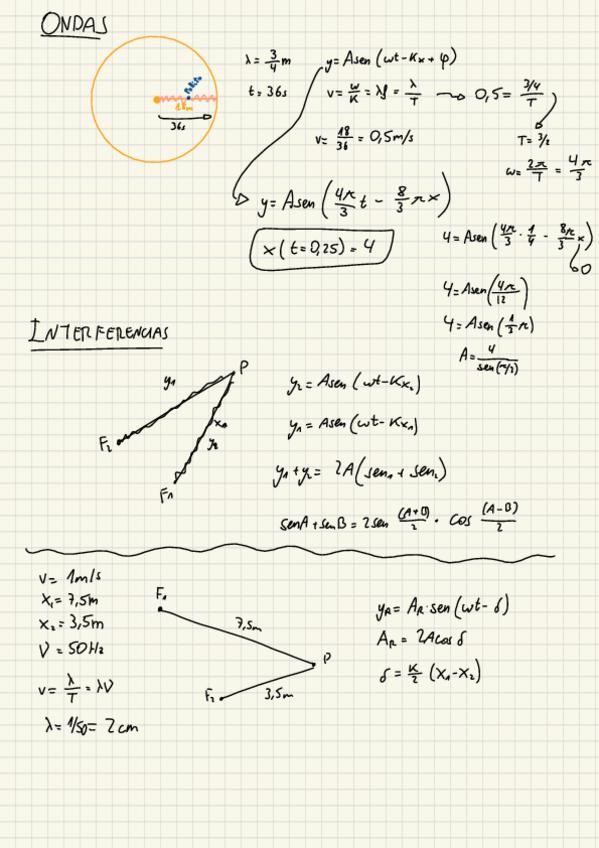 ONDAS
λ = 3/4 m
t = 36s
18m
36s
y = Asen (wt - Kx + φ)
v = w/K = λf = λ/T → 0,5 = 3/4 / T
v = 18/36 = 0,5 m/s
T = 3/2
w = 2π/T = 4π/3
y = Asen (4π/3 t - 8/3 π x)
x (t = 0,25) = 4
4 = Asen (4π/3 · 1/4 - 8π/3 x)
0
4 = Asen (4π/12)
4 = Asen (1/3 π)
A = 4/sen(π/3)
INTERFERENCIAS
y1
P
F2
x1
y2
F1
y2 = Asen (wt - Kx2)
y1 = Asen (wt - Kx1)
y1 + y2 = 2A (sen1 + sen2)
senA + senB = 2sen (A+B)/2 · cos (A-B)/2
v = 1m/s
x1 = 7,5m
x2 = 3,5m
ν = 50Hz
v = λ/T = λν
λ = 1/50 = 2cm
F1
7,5m
P
F2
3,5m
yR = AR·sen (wt - δ)
AR = 2A cos δ
δ = K/2 (x1 - x2)